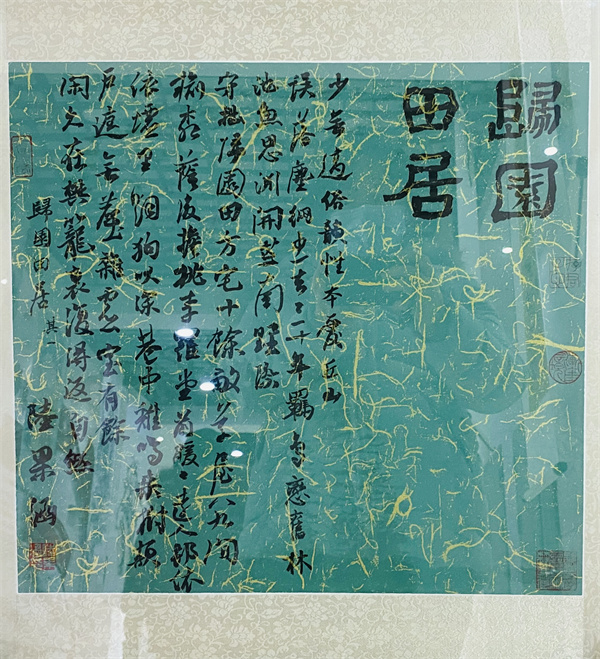 歸園
田居
少無適俗韻性本愛丘山
误落塵網中一去三十年羈鳥戀舊林
池魚思渊開荒南野際
守拙歸園田方宅十餘畝草屋八九間
榆柳蔭後簷桃李羅堂前曖〻遠人邨依
依墟里烟狗吠深巷中雞鳴桑樹顛
戶庭無塵雜虛室有餘
閑久在樊籠裏復得返自然
歸園田居 其一
陸果涵